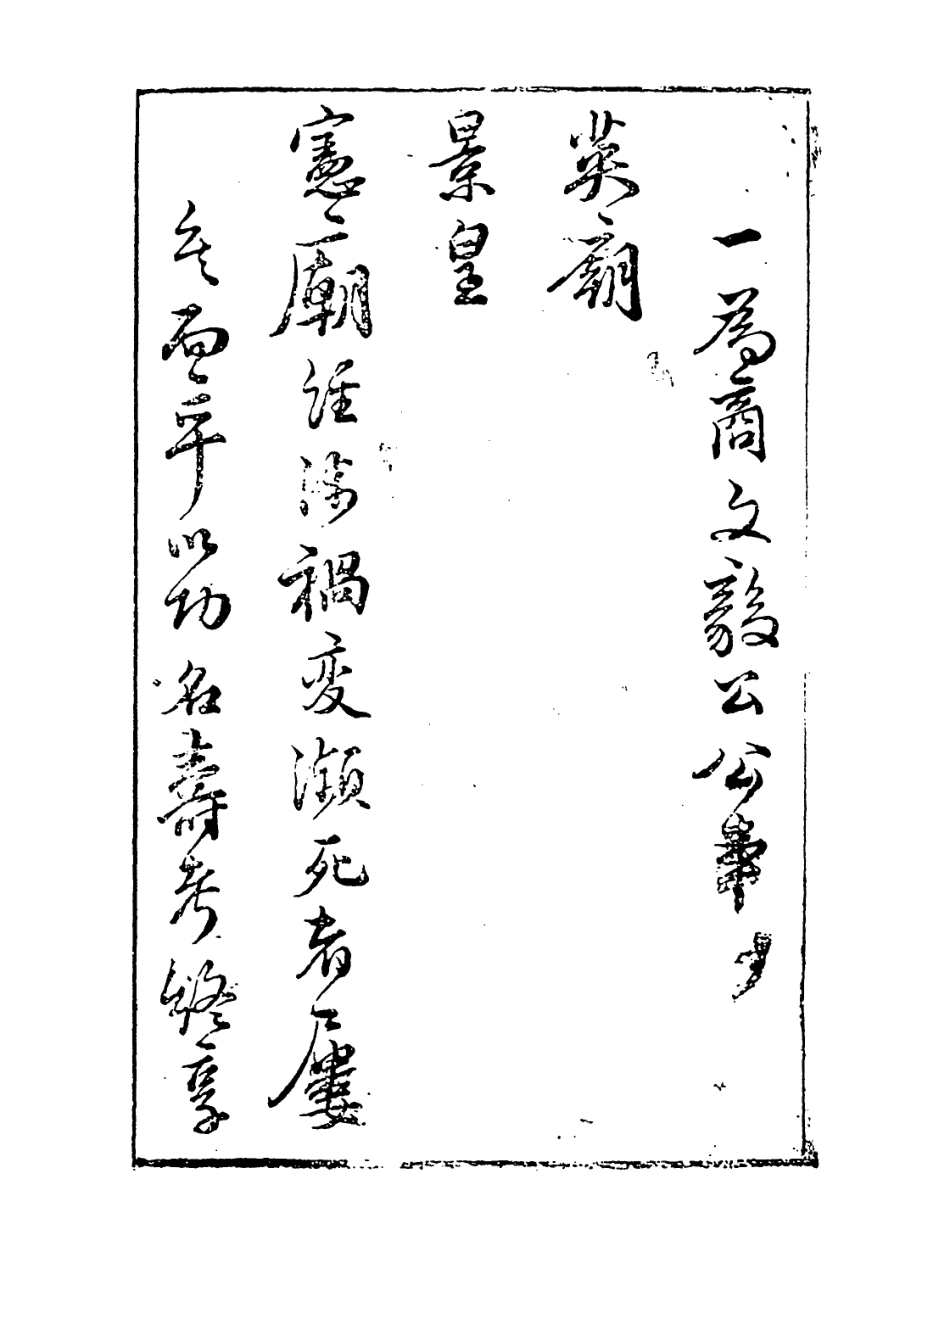 一為商文毅公公事
英廟
景皇
憲廟註禍變瀕死者屢
矣而卒以功名壽考終享